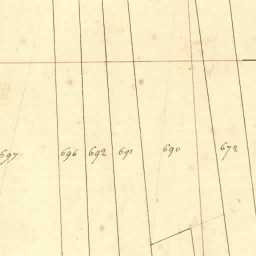 697 696 692 691 690 672